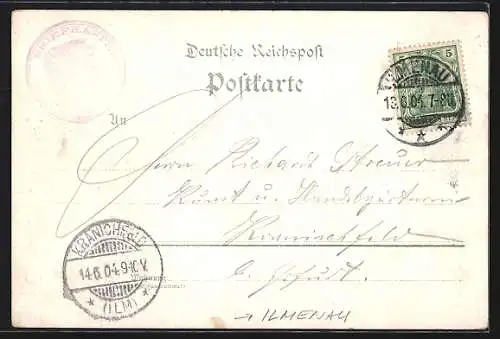 Deutsche Reichspost
Postkarte
5
ILMENAU
13.6.04. 7-8N.
An
Herrn Richard Streuer
Kunst u. Handelsgärtnerei
Kranichfeld
b. Erfurt.
KRANICHFELD
14.6.04.9-10V.
(ILM)
ILMENAU